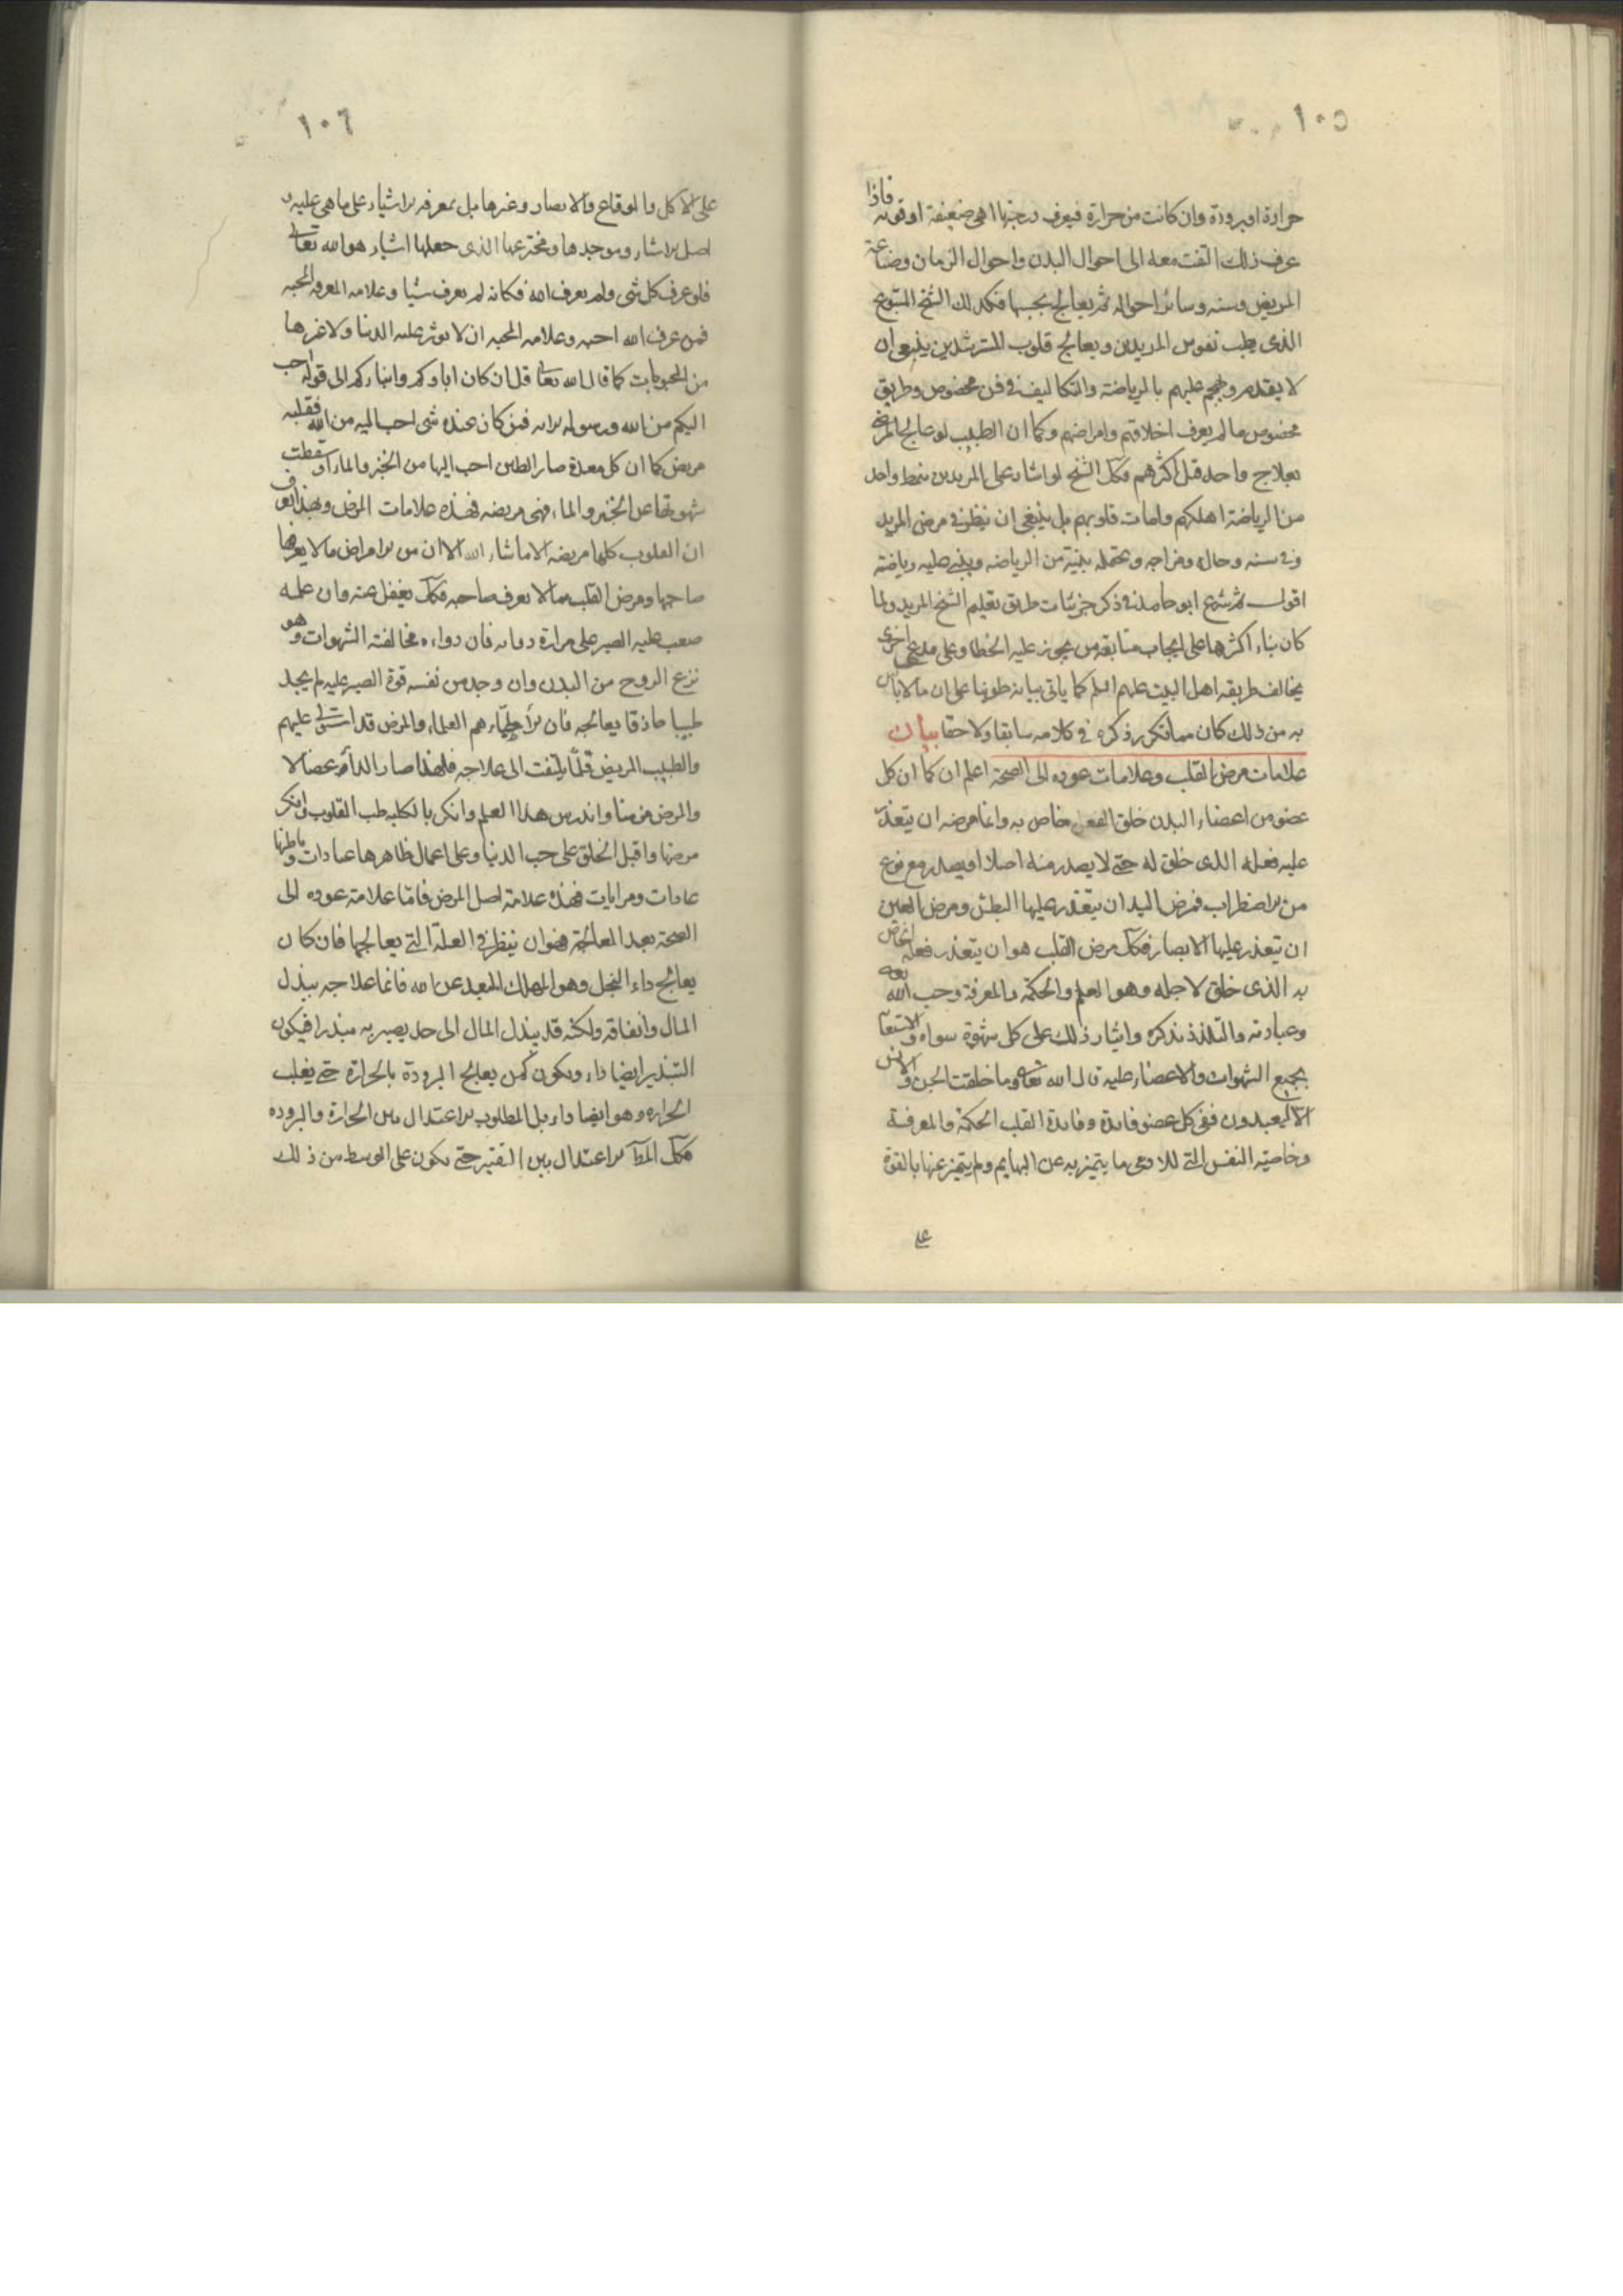 ١٠٥
حرارة او برودة وان كانت من حرارة فيعرف درجتها اهى ضعيفة او قوية فاذا
عرف ذلك التفت معه الى احوال البدن واحوال الزمان وصناعة
المريض وسنه وسائر احواله ثم يعالج بحسبها فكذلك الشيخ المتبوع
الذى يطب نفوس المريدين ويعالج قلوب المسترشدين ينبغى ان
لا يقدم ويهجم عليهم بالرياضة والتكاليف فى فن مخصوص وطريق
مخصوص ما لم يعرف اخلاقهم وامراضهم وكما ان الطبيب لو عالج المرضى
بعلاج واحد قتل اكثرهم فكك الشيخ لو اشار على المريدين بنمط واحد
من الرياضة اهلكهم وامات قلوبهم بل ينبغى ان ينظر فى مرض المريد
وفى سنه وحاله ومزاجه وما تحتمله بنيته من الرياضه ويبنى عليه رياضته
اقول ثم شرع ابو حامد فى ذكر جزئيات طرق تعليم الشيخ المريد ولما
كان بناء اكثرها على ايجاب متابعة من يجوز عليه الخطا وعلى اخرى
يخالف طريقه اهل البيت عليهم السلم كما ياتى بيانه طويناها على ان ما لا باس
به من ذلك كان مما تكرر ذكره فى كلامه سابقا ولاحقا بيان
علامات مرض القلب وعلامات عوده الى الصحة اعلم ان كما ان كل
عضو من اعضاء البدن خلق لفعل خاص به وانما مرضه ان يتعذر
عليه فعله الذى خلق له حتى لا يصدر منه اصلا او يصدر مع نوع
من الاضطراب فمرض اليد ان يتعذر عليها البطش ومرض العين
ان يتعذر عليها الابصار فكك مرض القلب هو ان يتعذر فعله الخاص
به الذى خلق لاجله وهو العلم والحكمة والمعرفة وحب الله
وعبادته والتلذذ بذكره وايثار ذلك على كل شهوة سواه والاستعانة
بجميع الشهوات والاعضاء عليه قال الله تعالى وما خلقت الجن والانس
الا ليعبدون ففى كل عضو فائدة وفائدة القلب الحكمة والمعرفة
وخاصية النفس التى للادمى ما يتميز به عن البهايم ولم يتميز عنها بالقوة
على
١٠٦
على الاكل والوقاع والابصار وغيرها بل بمعرفه الاشياء على ما هى عليه و
اصل الاشياء وموجدها ومخترعها الذى جعلها اشياء هو الله تعالى
فلو عرف كل شى ولم يعرف الله فكانه لم يعرف شيا وعلامه المعرفه المحبه
فمن عرف الله احبه وعلامه المحبه ان لا يوثر عليه الدنيا ولا غيرها
من المحبوبات كما قال الله تعالى قل ان كان اباوكم وابناءكم الى قوله احب
اليكم من الله ورسوله الايه فمن كان عنده شى احب اليه من الله فقلبه
مريض كما ان كل معدة صار الطين احب اليها من الخبز والماء او سقطت
شهوتها عن الخبز والماء فهى مريضه فهذه علامات المرض وبهذا يعرف
ان القلوب كلها مريضه الا ما شاء الله الا ان من الامراض ما لا يعرفها
صاحبها ومرض القلب مما لا يعرف صاحبه فكك يغفل عنه وان علمه
صعب عليه الصبر على مرارة دوائه فان دواءه مخالفة الشهوات وهو
نزع الروح من البدن وان وجد من نفسه قوة الصبر عليه لم يجد
طبيبا حاذقا يعالجه فان الاطباء هم العلماء والمرض قد استولى عليهم
والطبيب المريض قلما يلتفت الى علاجه فلهذا صار الداء عضالا
والمرض مزمنا واندرس هذا العلم وانكر بالكليه طب القلوب وانكر
مرضها واقبل الخلق على حب الدنيا وعلى اعمال ظاهرها عبادات وباطنها
عادات ومرايات فهذه علامة اصل المرض فاما علامة عوده الى
الصحة بعد المعالجة فهو ان ينظر فى العلة التى يعالجها فان كان
يعالج داء البخل وهو المهلك المبعد عن الله فانما علاجه ببذل
المال وانفاقه ولكنه قد يبذل المال الى حد يصير به مبذرا فيكون
التبذير ايضا داء ويكون كمن يعالج البرودة بالحرارة حتى يغلب
الحراره وهو ايضا داء بل المطلوب الاعتدال بين الحرارة والبروده
فكك المط الاعتدال بين التقتير حتى يكون على الوسط من ذلك